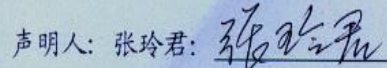 声明人：张玲君：张玲君